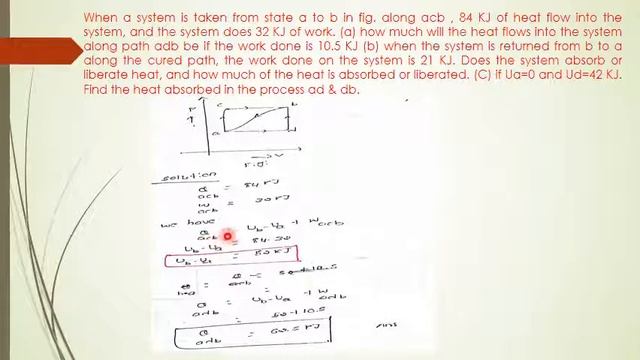 When a system is taken from state a to b in fig. along acb , 84 KJ of heat flow into the
system, and the system does 32 KJ of work. (a) how much will the heat flows into the system
along path adb be if the work done is 10.5 KJ (b) when the system is returned from b to a
along the cured path, the work done on the system is 21 KJ. Does the system absorb or
liberate heat, and how much of the heat is absorbed or liberated. (C) if Ua=0 and Ud=42 KJ.
Find the heat absorbed in the process ad & db.
P
c b
a d
V
solution
Q acb = 84 KJ
W acb =
we have
Q acb Ub-Ua + W acb
Ub-Ua =
Ub-Ua = 52 KJ
Q adb = Ub-Ua + W adb
Q adb = 62.5 KJ
Ans